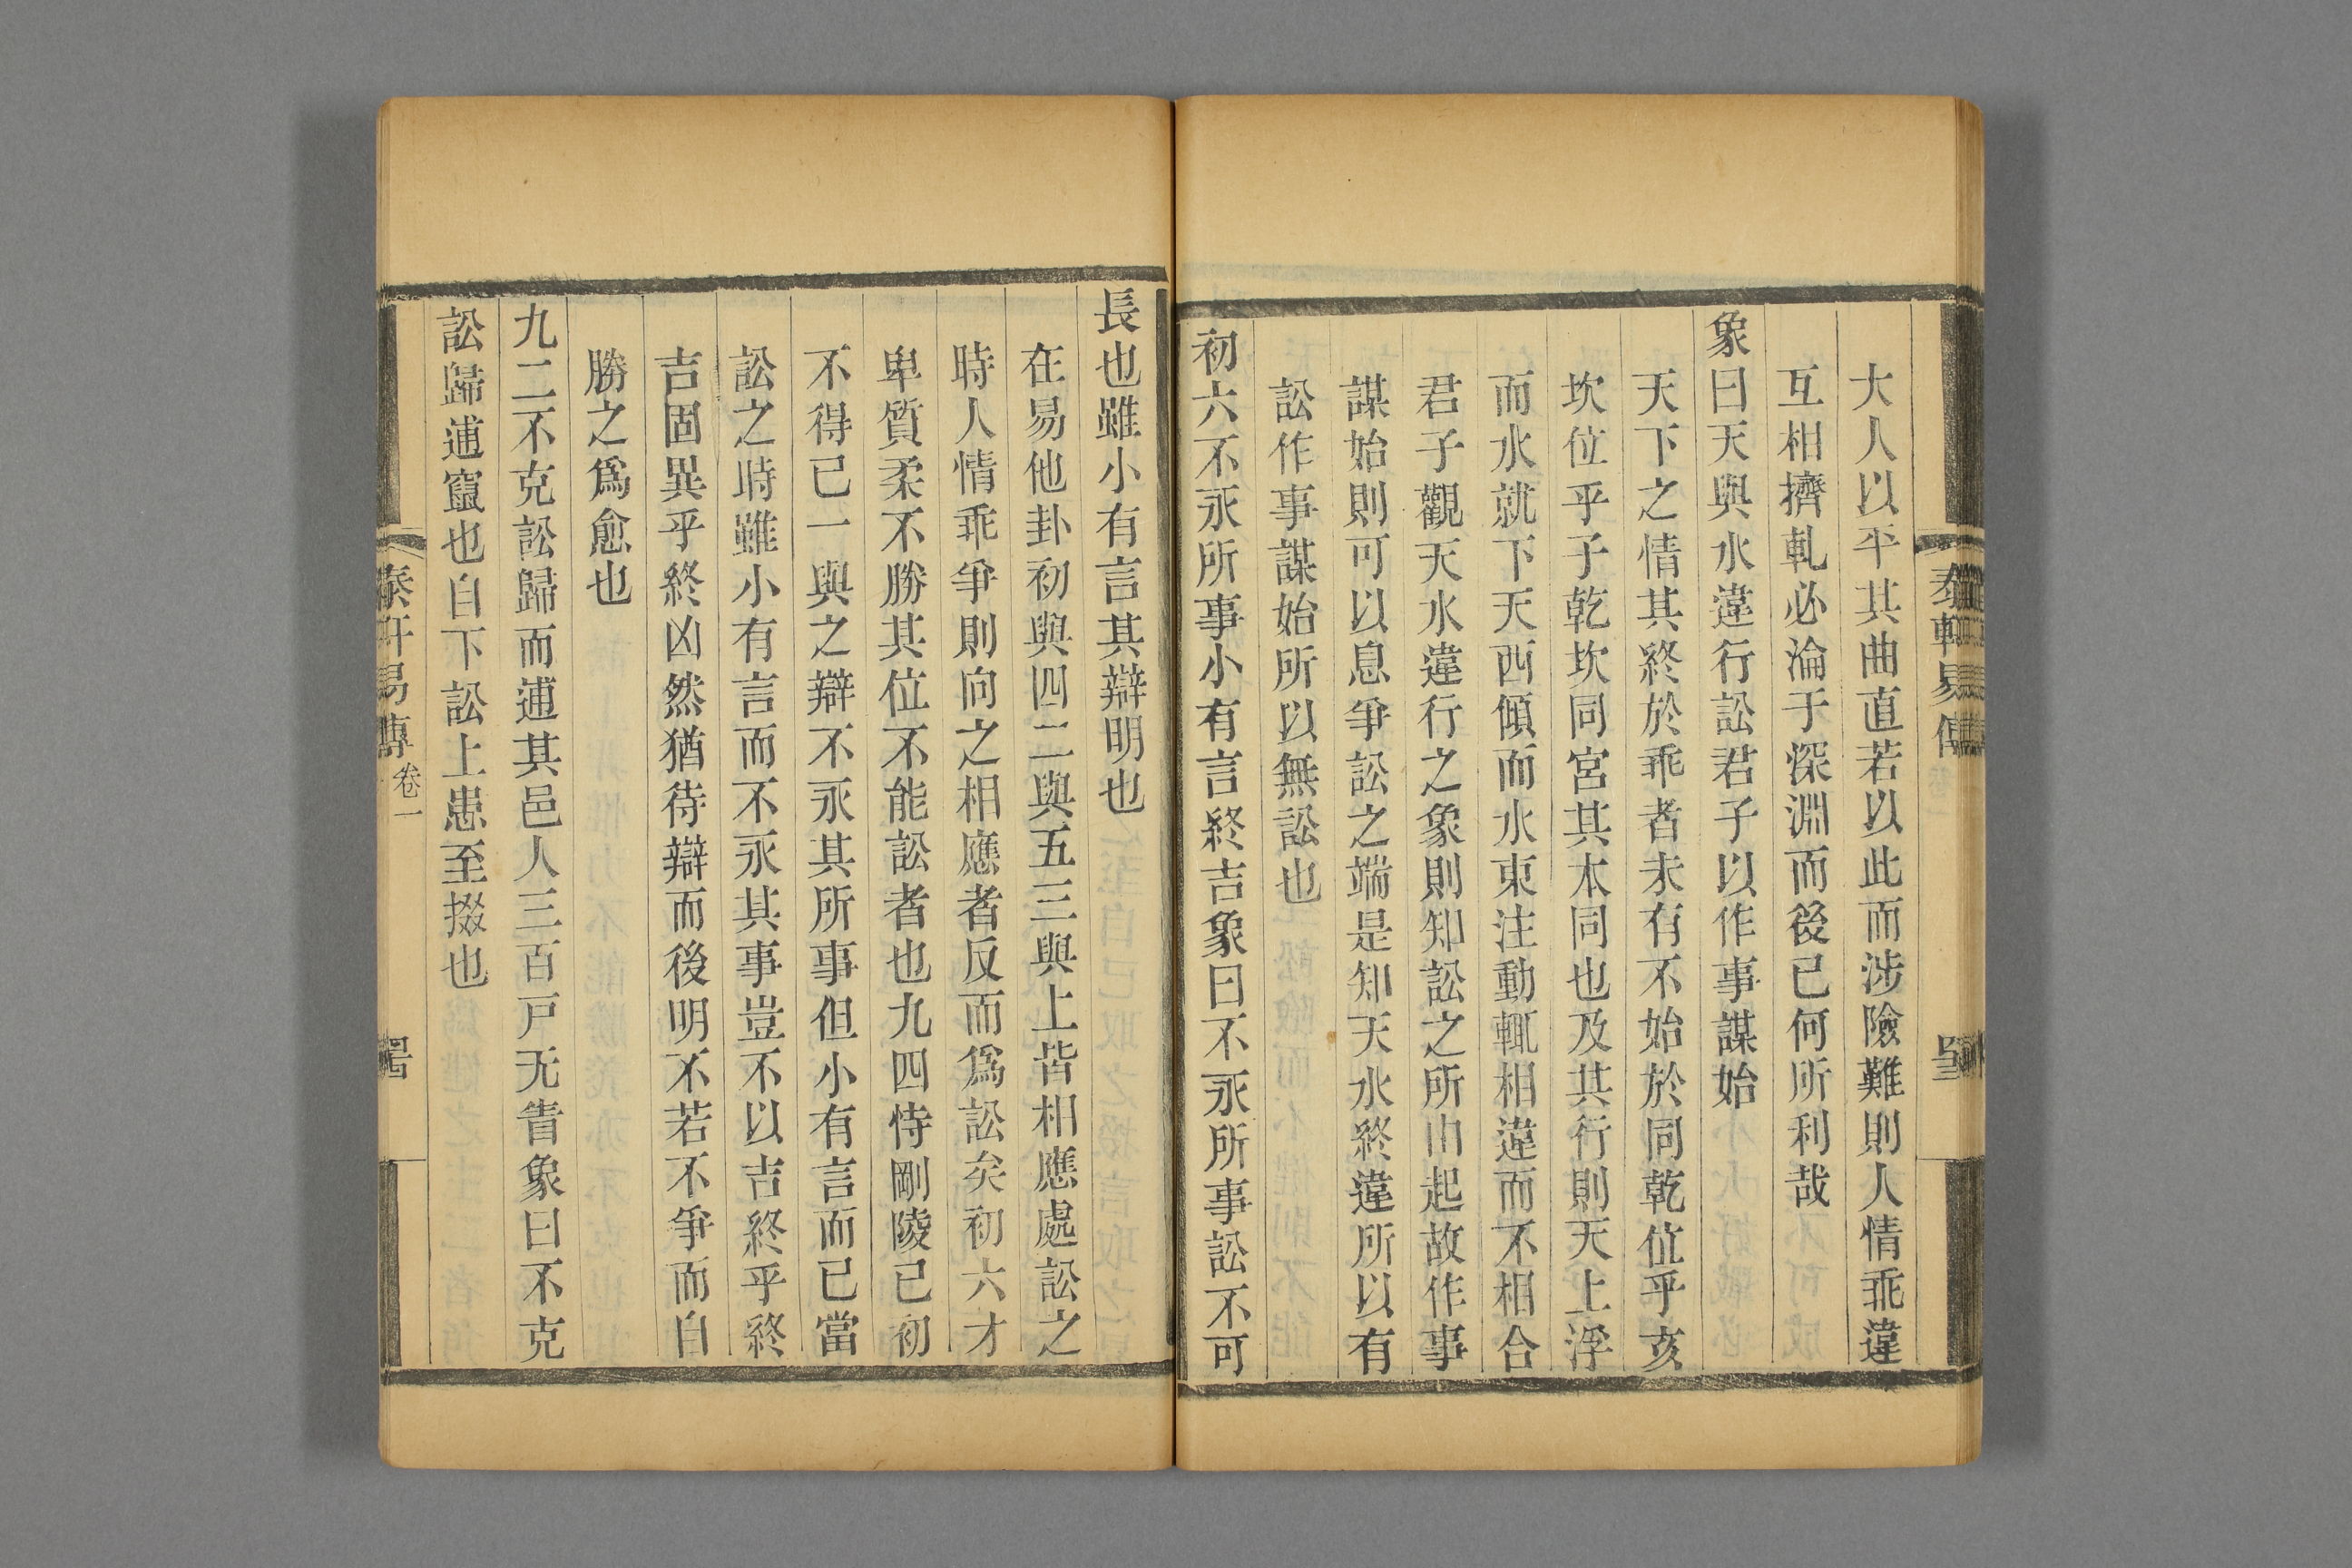 大人以平其曲直若以此而涉險難則人情乖違
互相擠軋必淪于深淵而後已何所利哉
象曰天與水違行訟君子以作事謀始
天下之情其終於乖者未有不始於同乾位乎亥
坎位乎子乾坎同宮其本同也及其行則天上浮
而水就下天西傾而水東注動輒相違而不相合
君子觀天水違行之象則知訟之所由起故作事
謀始則可以息爭訟之端是知天水終違所以有
訟作事謀始所以無訟也
初六不永所事小有言終吉象曰不永所事訟不可
長也雖小有言其辯明也
在易他卦初與四二與五三與上皆相應處訟之
時人情乖爭則向之相應者反而爲訟矣初六才
卑質柔不勝其位不能訟者也九四恃剛陵已初
不得已一與之辯不永其所事但小有言而已當
訟之時雖小有言而不永其事豈不以吉終乎終
吉固異乎終凶然猶待辯而後明不若不爭而自
勝之爲愈也
九二不克訟歸而逋其邑人三百戸无眚象曰不克
訟歸逋竄也自下訟上患至掇也
易傳
卷一